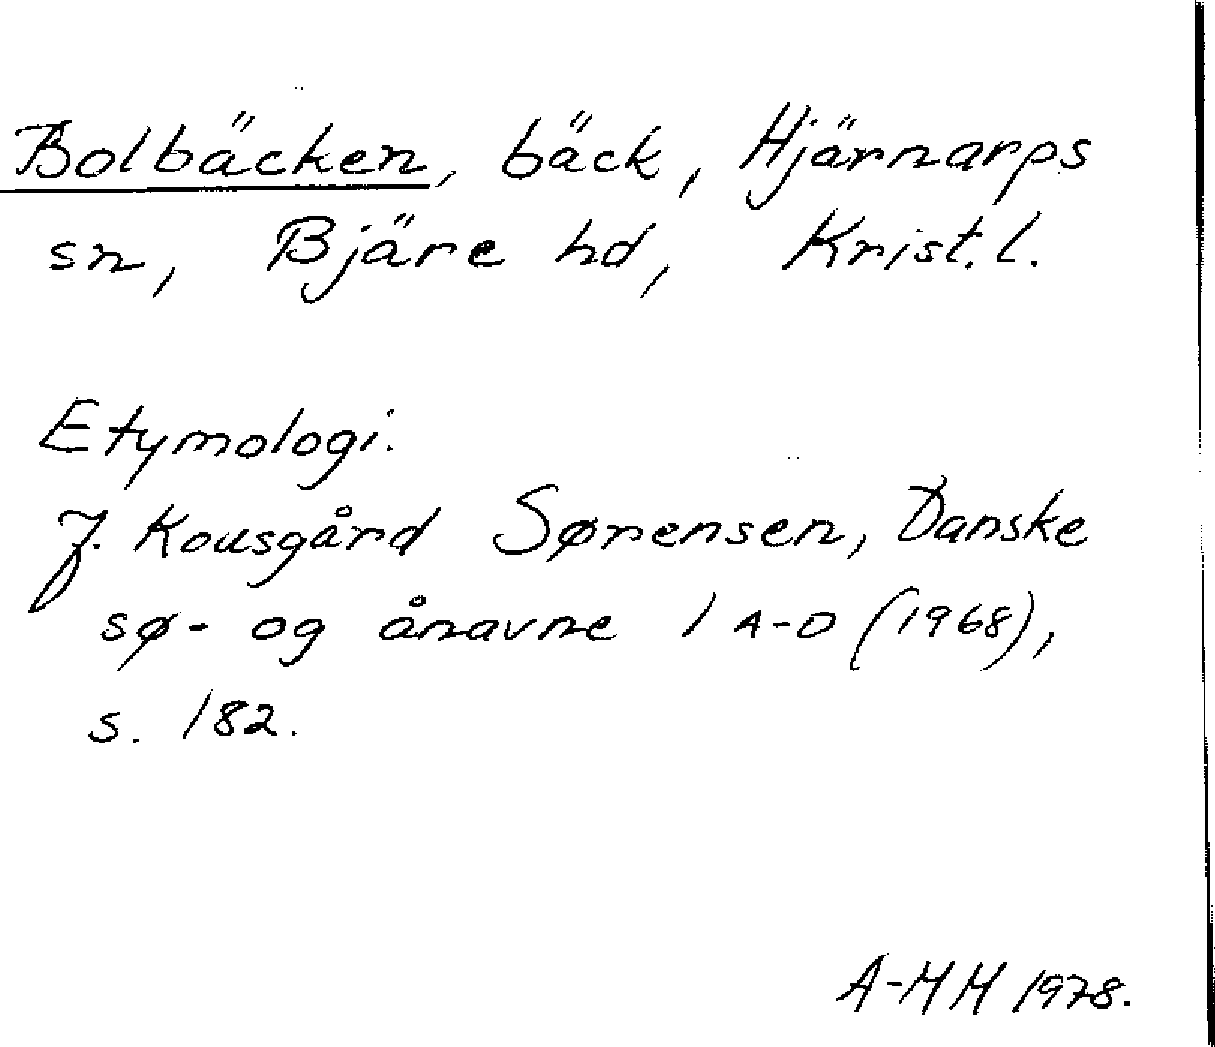 Bolbäcken, bäck, Hjärnarps
sn, Bjäre hd, Krist. l.
Etymologi:
J. Kousgård Sørensen, Danske
sø- og ånavne 1 A-D (1968),
s. 182.
A-MH 1978.